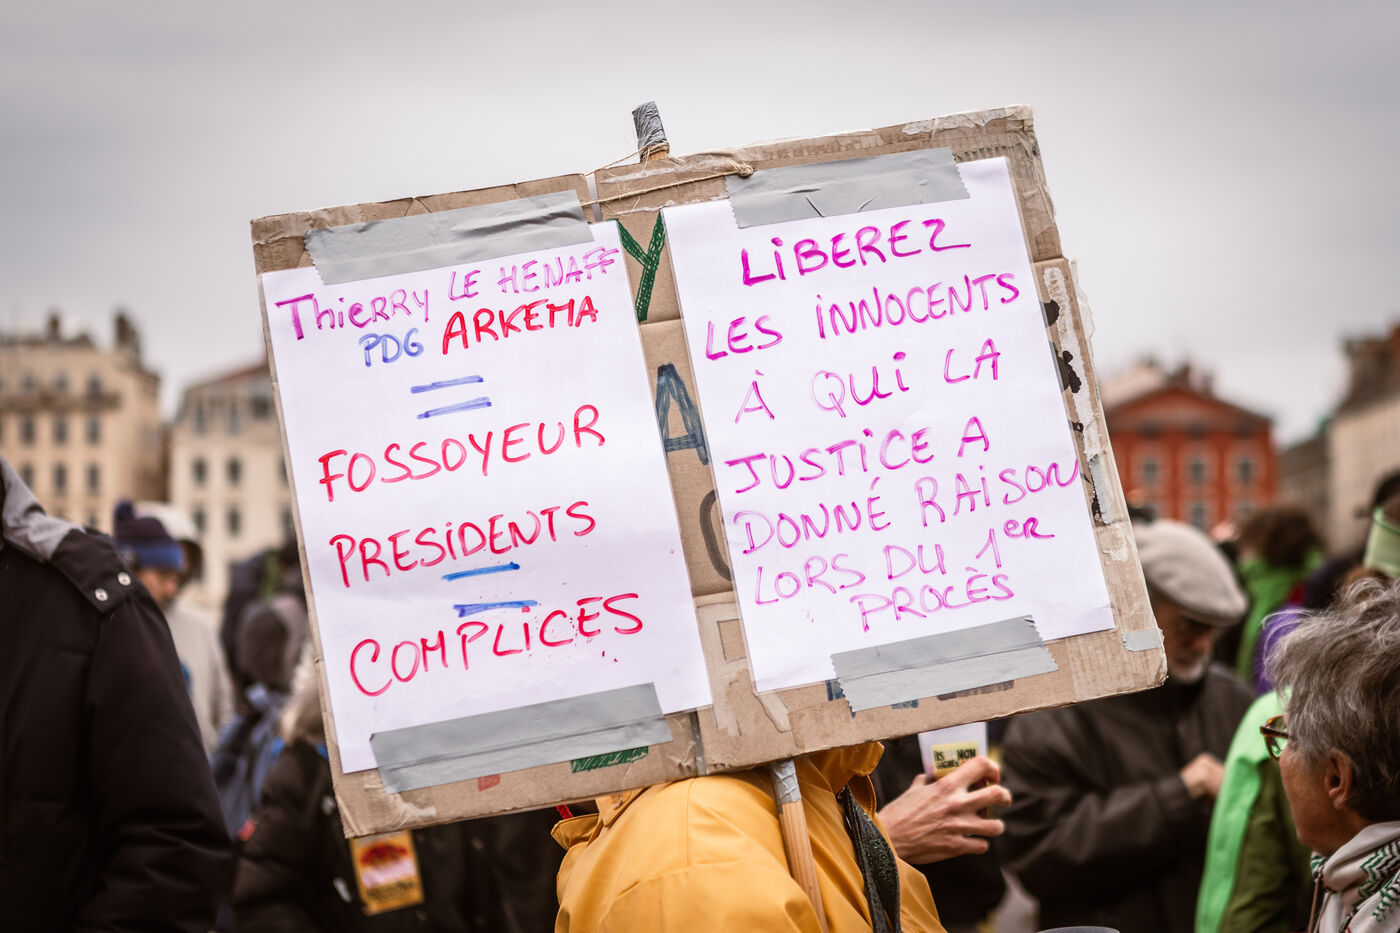 Thierry LE HENAFF
PDG ARKEMA
=
FOSSOYEUR
PRESIDENTS
=
COMPLICES
LIBEREZ
LES INNOCENTS
À QUI LA
JUSTICE A
DONNÉ RAISON
LORS DU 1er
PROCÈS
Y
A
NON